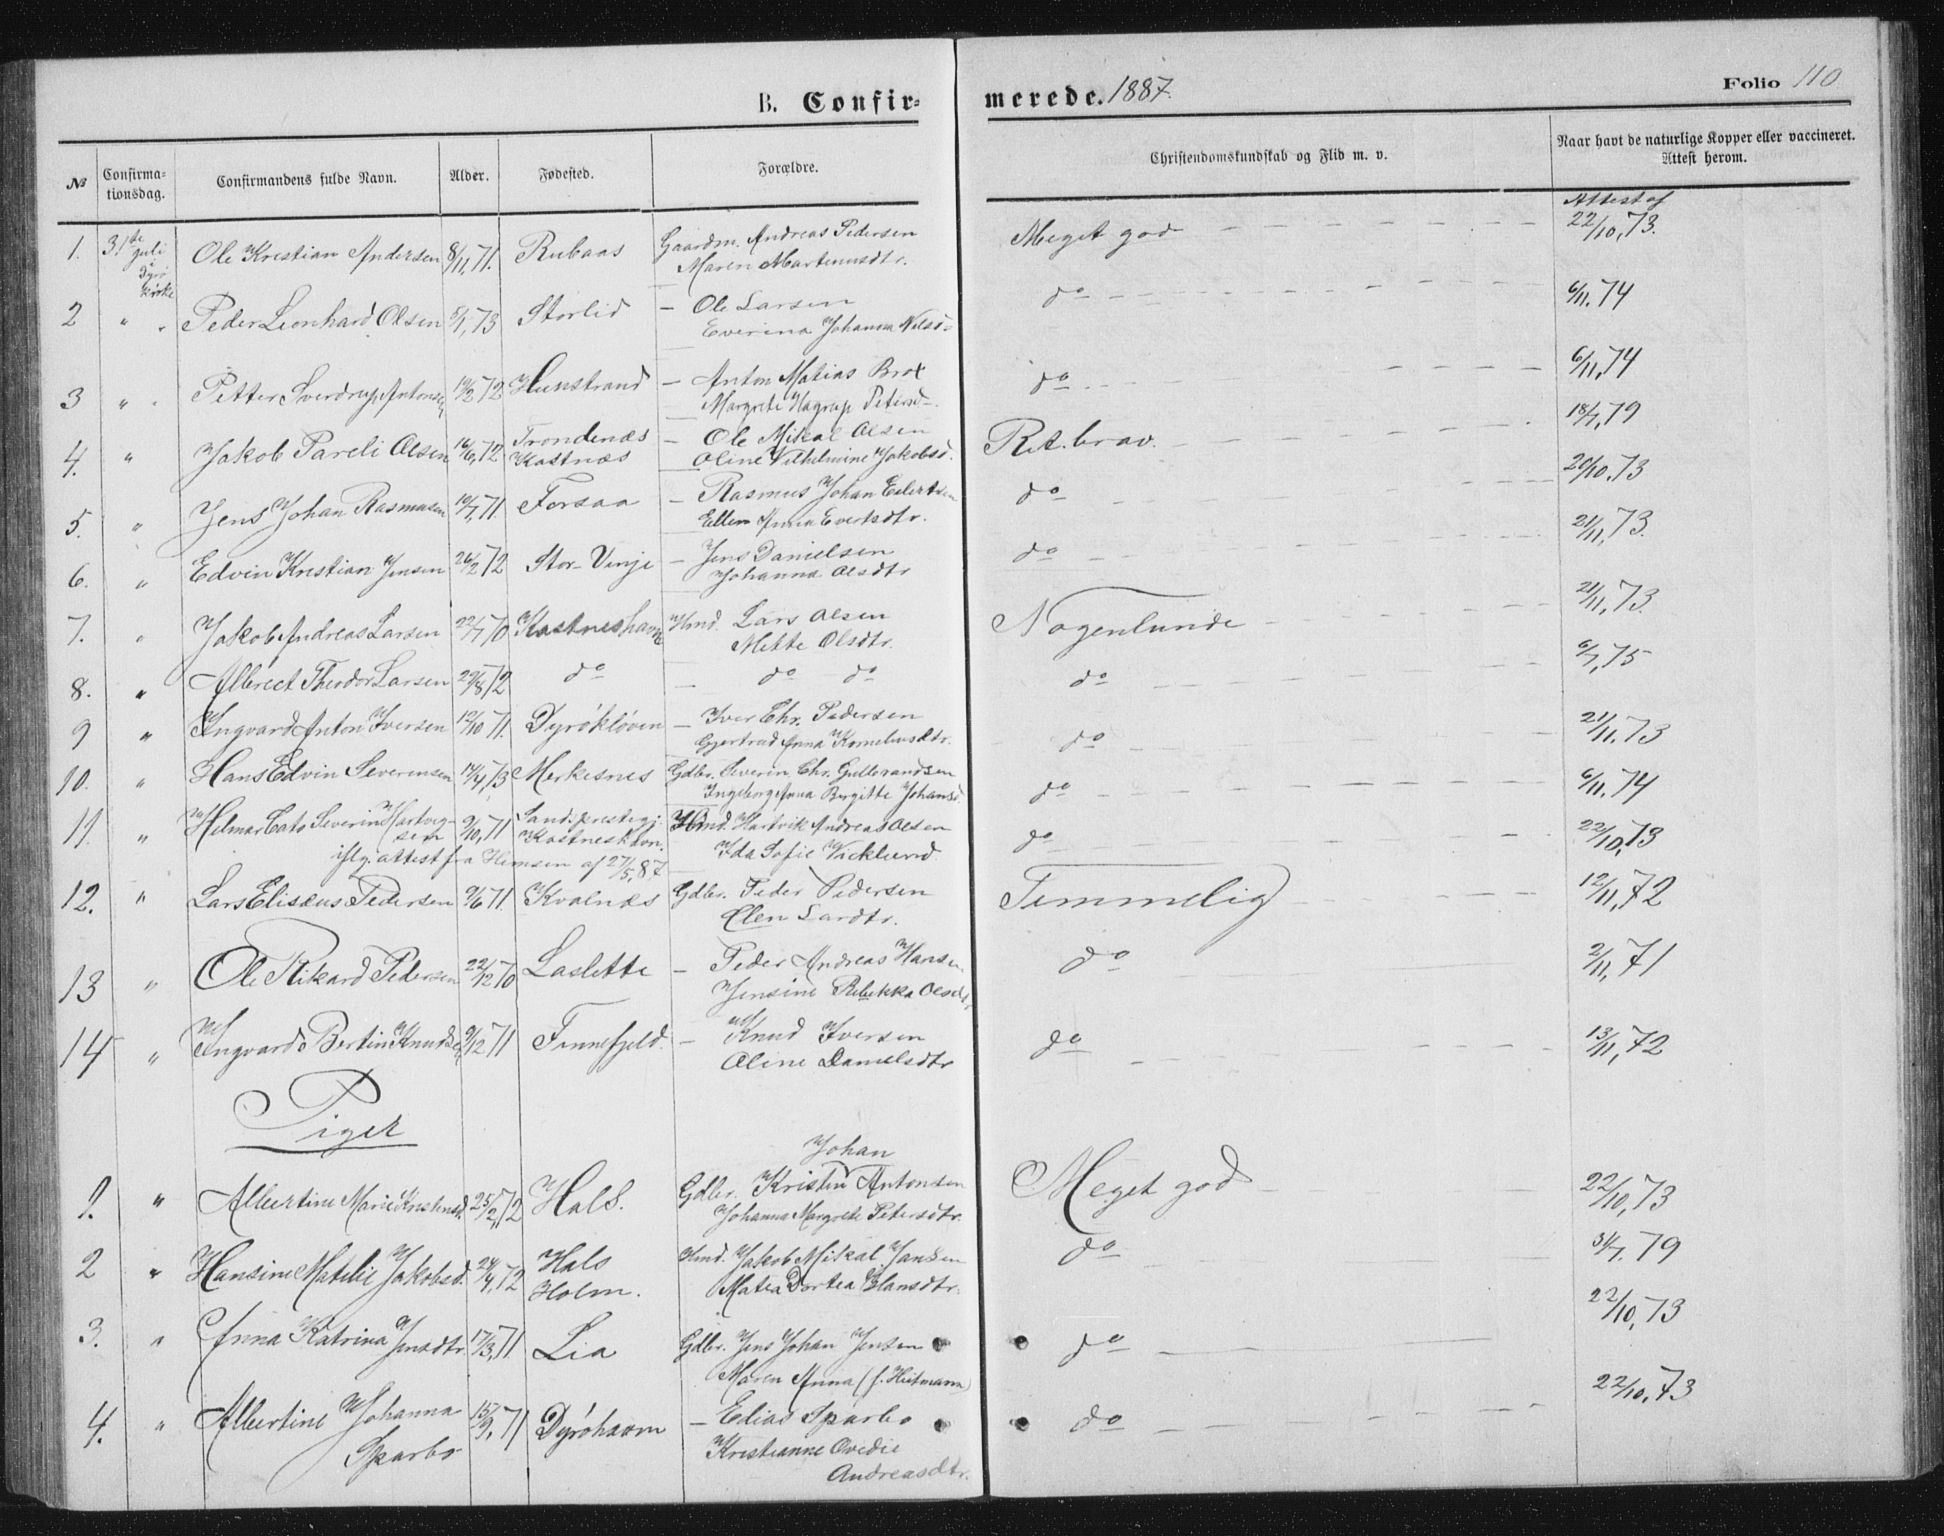 B. Confir-
merede. 1887.
Folio 110
№ Confirma-tionsdag. Confirmandens fulde Navn. Alder. Fødested. Forældre. Christendomskundskab og Flid m. v. Naar havt de naturlige Kopper eller vaccineret. Attest herom.
1. 31te Juli Dyrø Kirke Ole Kristian Andersen 8/11, 71. Rubaas Gaardm. Andreas Pedersen Meget god Attest af 22/10, 73.
Maren Martinusdtr.
2 " " Peder Leonhard Olsen 8/1, 73 Storlid — Ole Larsen do 6/11. 74
Everina Johanna Nilsd-
3 " " Petter Sverdrup Antonsen 19/2 72 Hunstrand — Anton Matias Brox do 6/11, 74
Margrete Hagrup Petersd-
4. " Jakob Pareli Olsen 16/6, 72 Trondenæs — Ole Mikal Olsen Ret. brav. 18/7, 79
Kastnæs Oline Vilhelmine Jakobsd.
5. " Jens Johan Rasmusen 10/7, 71. Forsaa — Rasmus Johan Eilertsen do 20/10, 73
Ellen Anna Evertsdtr.
6. " Edvin Kristian Jensen 26/2 72 Stor-Vinje — Jens Danielsen do 21/11, 73.
Johanna Olsdtr
7. " Jakob Andreas Larsen 22/7 70 Kastneshavn Hmd. Lars Olsen Nogenlunde 21/11, 73.
Mette Olsdtr.
8. " Albrect Theodor Larsen 29/8 72 do — do do do 6/7, 75
9 " Ingvard Anton Iversen 12/10 71. Dyrøkløven — Iver Chr. Pedersen do 21/11. 73
Gjertrud Anna Korneliusdtr.
10. " Hans Edvin Severinsen 14/4, 73 Merkesnes Gdbr. Severin Chr. Gulbrandsen do 6/11. 74
Ingeborg Anna Birgitte Johansd.
11. " Helmer Cato Severin Hartvig- 9/10, 71 Sands præstegj. Hmd. Hartvik Andreas Olsen do 22/10, 73
sen Kastneshavn. Ida Sofie Vicklund.
iflg. attest fra Hemsen af 27/5, 87
12. " Lars Elisæus Pedersen 9/6 71. Kvalnæs Gdbr. Peder Pedersen Temmelig 12/11, 72
Elen Larsdtr.
13 " Ole Rikard Pedersen 22/12 70 Laslette — Peder Andreas Hansen do 2/11, 71
Jensine Rebekka Olsdtr
14 " Ingvard Bertin Knudsen 9/12 71 Finnefjeld. — Knud Iversen do 13/11, 72
Oline Danielsdtr
Piger
Johan
1. " Albertine Marie Kristensd. 25/2, 72 Hals. Gdbr. Kristen Antonsen Meget god 22/10, 73
Johanna Margrete Petersdtr.
2 " Hansine Matilie Jakobsd. 24/4, 72 Hals Hmd. Jakob Mikal Jansen do 31/7. 79
Holm. Matea Dortea Hansdtr.
3. " Anna Katrina Jensdtr. 17/3, 71 Lia Gdbr. Jens Johan Jensen do 22/10, 73
Maren Anna (f. Heitmann)
4. " Albertine Johanna 15/9, 71 Dyrøhavn — Edias Sparbo do 22/10, 73
Sparbo Kristianne Ovedie
Andreasdtr.